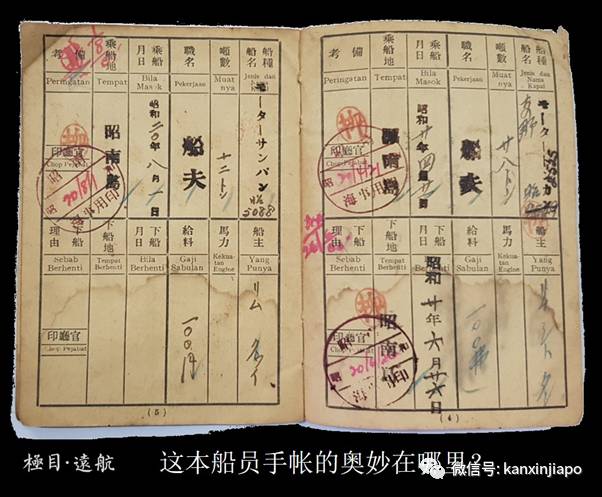 船種
船名
Jenis dan
Nama
Kapal
モーターサンパン
噸數
Muat
nya
廿八トン
職名
Pekerjaan
船夫
乘船
月日
Bila
Masok
昭和廿年四月廿
乘船地
Tempat
昭南島
備考
Peringatan
印廳官
Chop Pejabat
海事用印
船主
Yang
Punya
馬力
Kekua-
tan
Engine
給料
Gaji
Sabulan
一〇〇
下船
月日
Bila
Berhenti
昭和廿年六月廿六日
下船地
Tempat
Berhenti
昭南
下船
理由
Sebab
Berhenti
20/6/26
(4)
船種
船名
Jenis dan
Nama
Kapal
モーターサンパン
昭
5088
噸數
Muat
nya
十二トン
職名
Pekerjaan
船夫
乘船
月日
Bila
Masok
昭和二〇年八月一日
乘船地
Tempat
昭南島
備考
Peringatan
印廳官
Chop Pejabat
海事用印
船主
Yang
Punya
リム
馬力
Kekua-
tan
Engine
給料
Gaji
Sabulan
一〇〇円
下船
月日
Bila
Berhenti
下船地
Tempat
Berhenti
下船
理由
Sebab
Berhenti
印廳官
Chop Pejabat
(5)
極目·遠航
这本船员手帐的奥妙在哪里?
微信号: kanxinjiapo